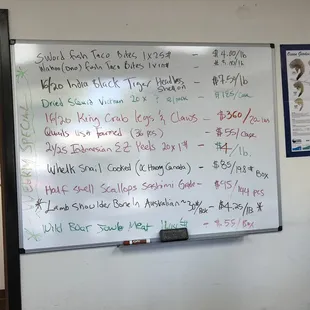 Sword Fish Taco Bites 1x25# - $4.00/lb
Wahoo (ono) Fish Taco Bites - $3.00/lb
16/20 India Black Tiger Headless Shell on - $7.55/lb
Dried Squid Vietnam 20 x - $185/case
16/20 King Crab Legs & Claws - $360/20 lb
Quails USA farmed (36 pcs) - $55/case
21/25 Indonesian EZ Peels 20 x 1# - $4/lb
Whelk Snail Cooked (OC Hoang Canada) - $85/
Half shell Scallops Sashimi Grade - $95/144 pcs
*Lamb Shoulder Bone In Australian - $4.25/lb *
Wild Boar Jowls Meat - $55/Box
SPECIAL